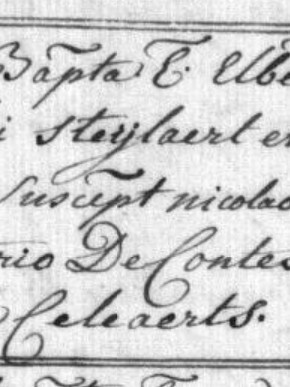 Bapta E: Elbe
i steijlaert en
Suscept nicolao
rio De Contes
Celeaerts.